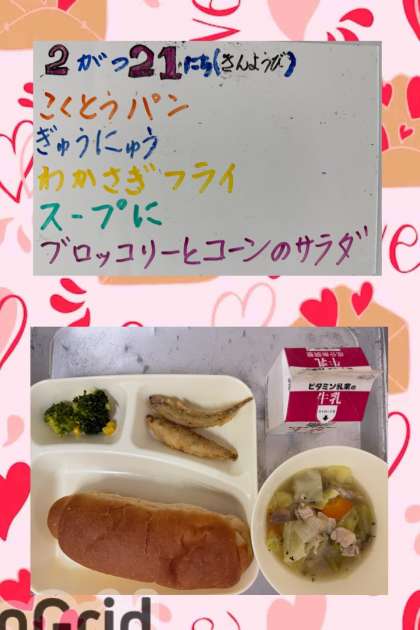 2がつ21にち(きんようび)
こくとうパン
ぎゅうにゅう
わかさぎフライ
スープに
ブロッコリーとコーンのサラダ
牛乳
ビタミン乳業の
牛乳